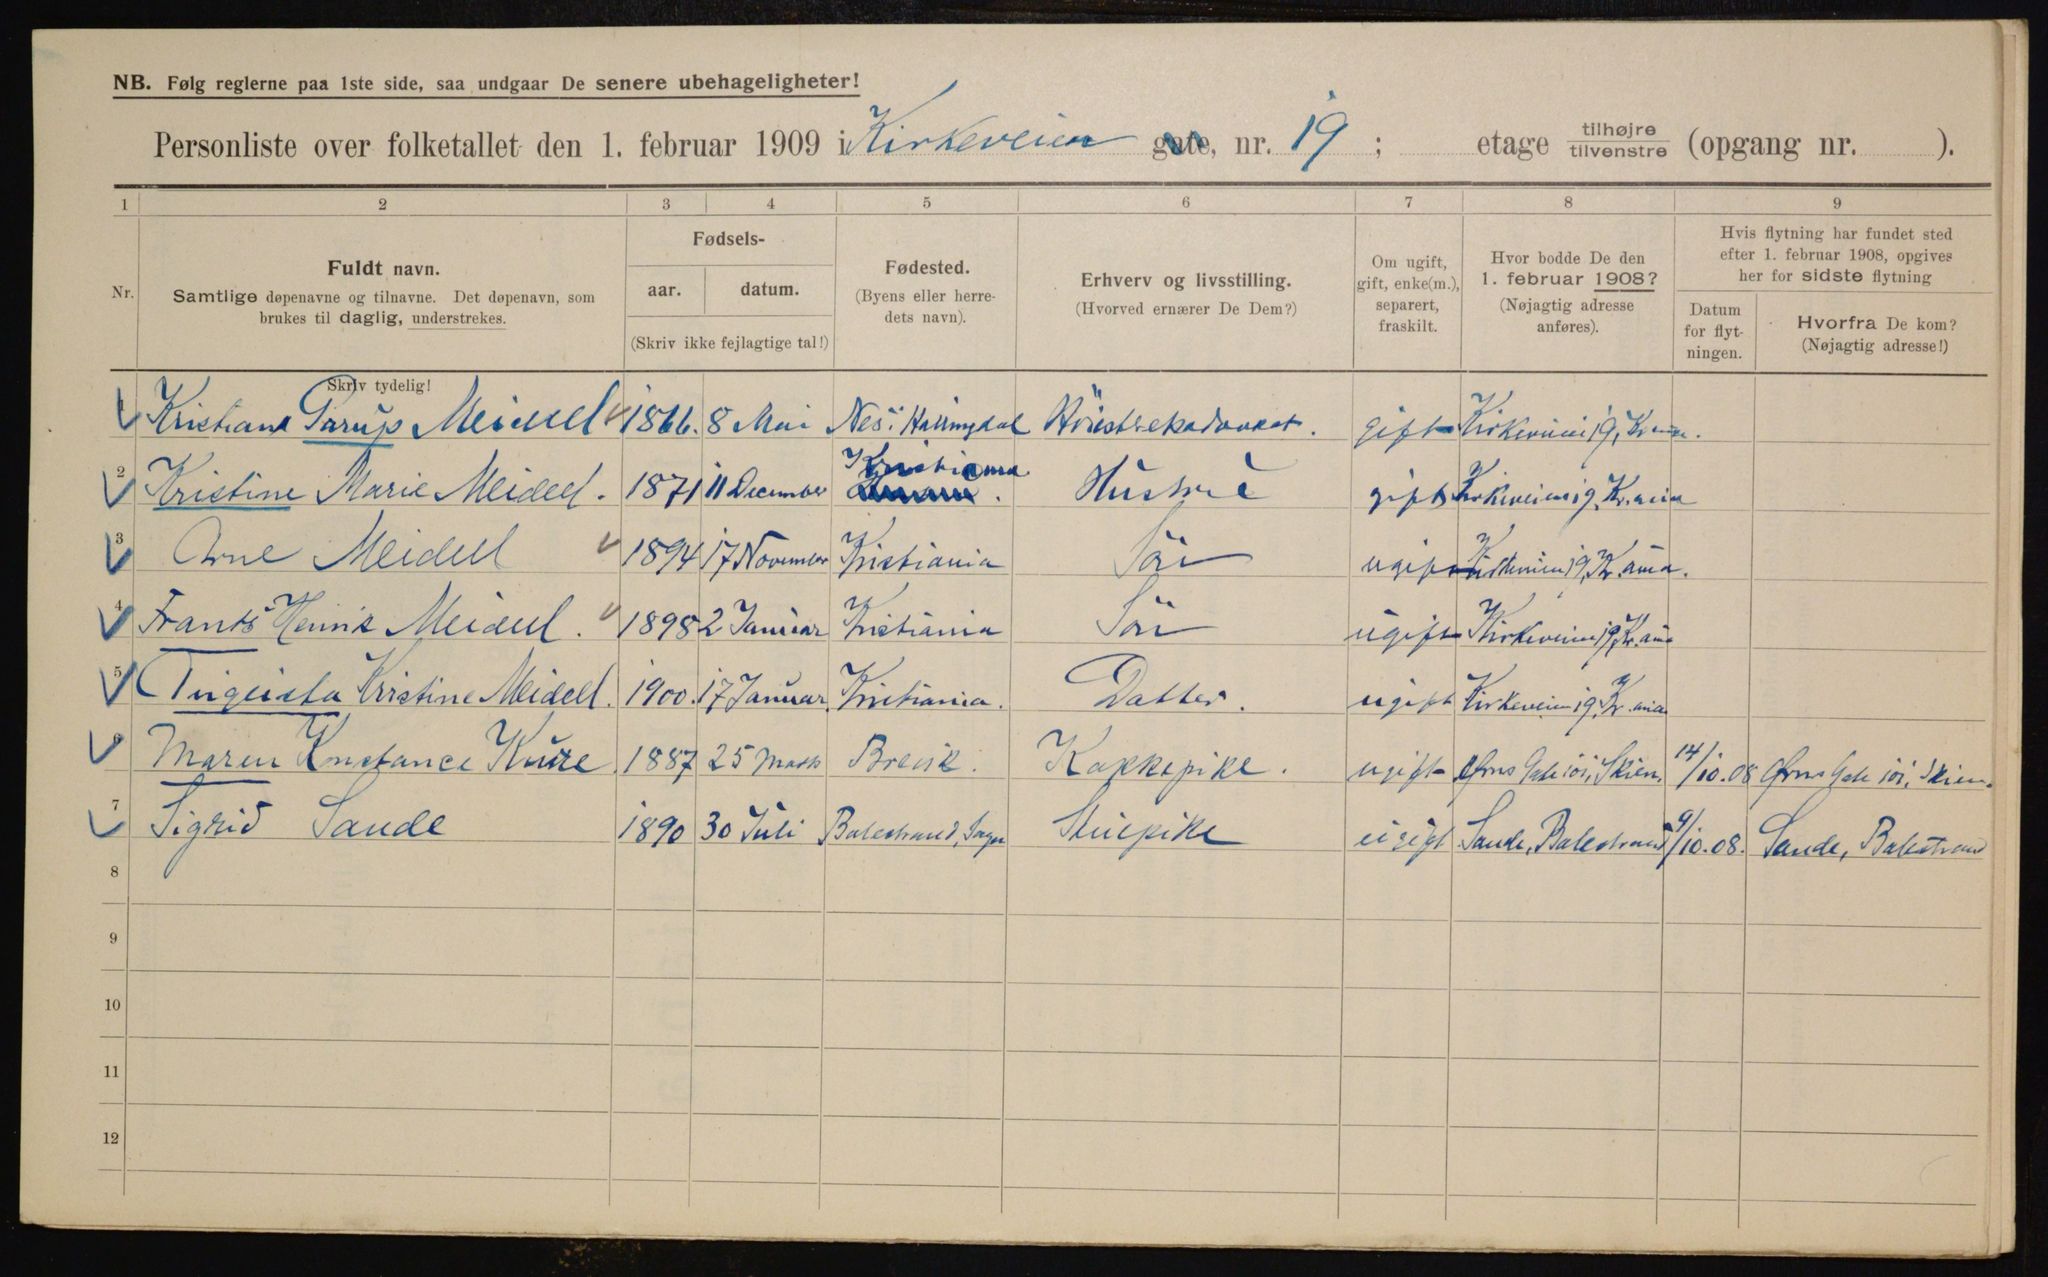 NB. Følg reglerne paa 1ste side, saa undgaar De senere ubehageligheter!
Personliste over folketallet den 1. februar 1909 i Kirkeveien gate, nr. 19 ; etage tilhøjre tilvenstre (opgang nr. ).
1 2 3 4 5 6 7 8 9
Nr.
Fuldt navn.
Samtlige døpenavne og tilnavne. Det døpenavn, som
brukes til daglig, understrekes.
Skriv tydelig!
Fødsels-
aar. datum.
(Skriv ikke fejlagtige tal!)
Fødested.
(Byens eller herre-
dets navn).
Erhverv og livsstilling.
(Hvorved ernærer De Dem?)
Om ugift,
gift, enke(m.),
separert,
fraskilt.
Hvor bodde De den
1. februar 1908?
(Nøjagtig adresse
anføres).
Hvis flytning har fundet sted
efter 1. februar 1908, opgives
her for sidste flytning
Datum
for flyt-
ningen.
Hvorfra De kom?
(Nøjagtig adresse!)
1 Kristian Parup Meidell 1866. 8 Mai Nes i Hallingdal Höiesteretsadvokat. gift Kirkeveien 19, Kr.ania.
2 Kristine Marie Meidell. 1871 11 December Kristiania. Hustru gift Kirkeveien 19, Kr.ania
3 Arne Meidell 1894 17 November Kristiania Sön ugift Kirkeveien 19, Kr.ania.
4 Frants Henrik Meidell. 1898 2 Januar Kristiania Sön ugift Kirkeveien 19, Kr.ania
5 Augusta Kristine Meidell. 1900. 17 Januar. Kristiania. Datter. ugift Kirkeveien 19, Kr.ania
6 Maren Konstance Kure. 1887 25 Marts Brevik. Kokkepike. ugift Ørns Gate 101, Skien. 14/10.08 Ørns Gate 101, Skien.
7 Sigrid Sande 1890 30 Juli Balestrand, Sogn Stuepike ugift Sande, Balestrand 9/10.08. Sande, Balestrand
8
9
10
11
12